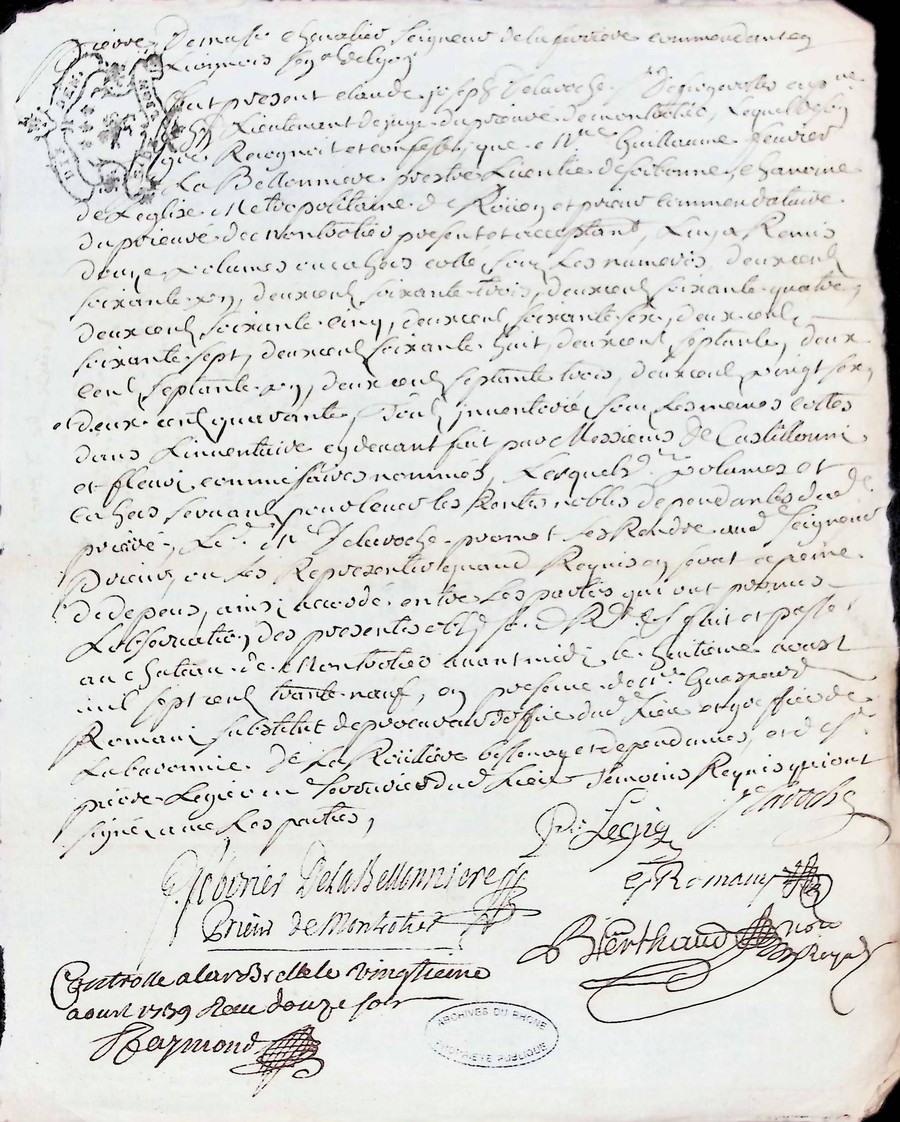 Pierre Demasse chevalier seigneur de la ferriere commendant en
Lionnois
fut present claude joseph Delaroche
Lieutenant de juge du prieuré de montrotier, Lequel
Recognoit et confesse que Mre Guillaume
La Bellonniere prestre Licentié de sorbonne, chanoine
de L'eglise Metropolitaine de Roüen et prieur commendataire
du prieuré de Montrotier present et acceptant, Luy a Remis
douze volumes ou cahiers cottés sous Les numeros deux cent
soixante un, deux cent soixante trois, deux cent soixante quatre,
deux cent soixante cinq, deux cent soixante six, deux cent
soixante sept, deux cent soixante huit, deux cent septante, deux
cent septante un, deux cent septante trois, deux cent vingt six,
et deux cent quarante, inventorié sous Les memes cottes
dans L'inventaire cy devant fait par Messieurs de Castilloni
et fleuri commissaires nommés, Lesquels d. volumes et
cahiers servant pour lever les Rentes nobles dependantes dud.
prieuré, Led. Sr Delaroche promet Les Rendre aud. seigneur
prieur, ou Les Representer quand Requis en serat a peine
de depens, ainsi accordé entre Les parties qui ont promis
L'observation des presentes fait et passé
au chateau de Montrotier avant midi le huitieme avost
mil sept cent trante neuf, en presence de Mre Gaspard
Romani substitut de procureur d'office dud. Lieu et greffier de
La baronnie de La Roüilliere et dependances, et de Sr
pierre Legier dud. Lieu temoins Requis qui ont
signé avec Les parties,
Delaroche
Pre Legie
Ouvrier De La Bellonniere
G Romany
Prieur de Montrotier
Berthaud nore
Royal
Controllé a Larbrelle le vingtieme
aoust 1739 Recu douze sols
Raymond
ARCHIVES DU RHÔNE
PROPRIÉTÉ PUBLIQUE